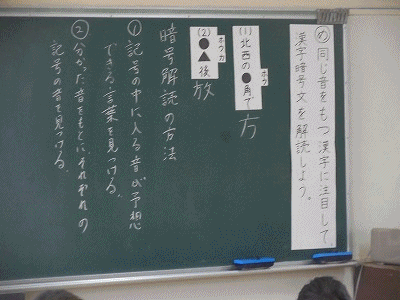 め 同じ音をもつ漢字に注目して、
漢字暗号文を解読しよう。
(1) 北西の●角で
ホウ
方
(2) ●▲後
ホウカ
放
暗号解読の方法
① 記号の中に入る音が予想
できる言葉を見つける。
② 分かった音をもとに、それぞれの
記号の音を見つける。